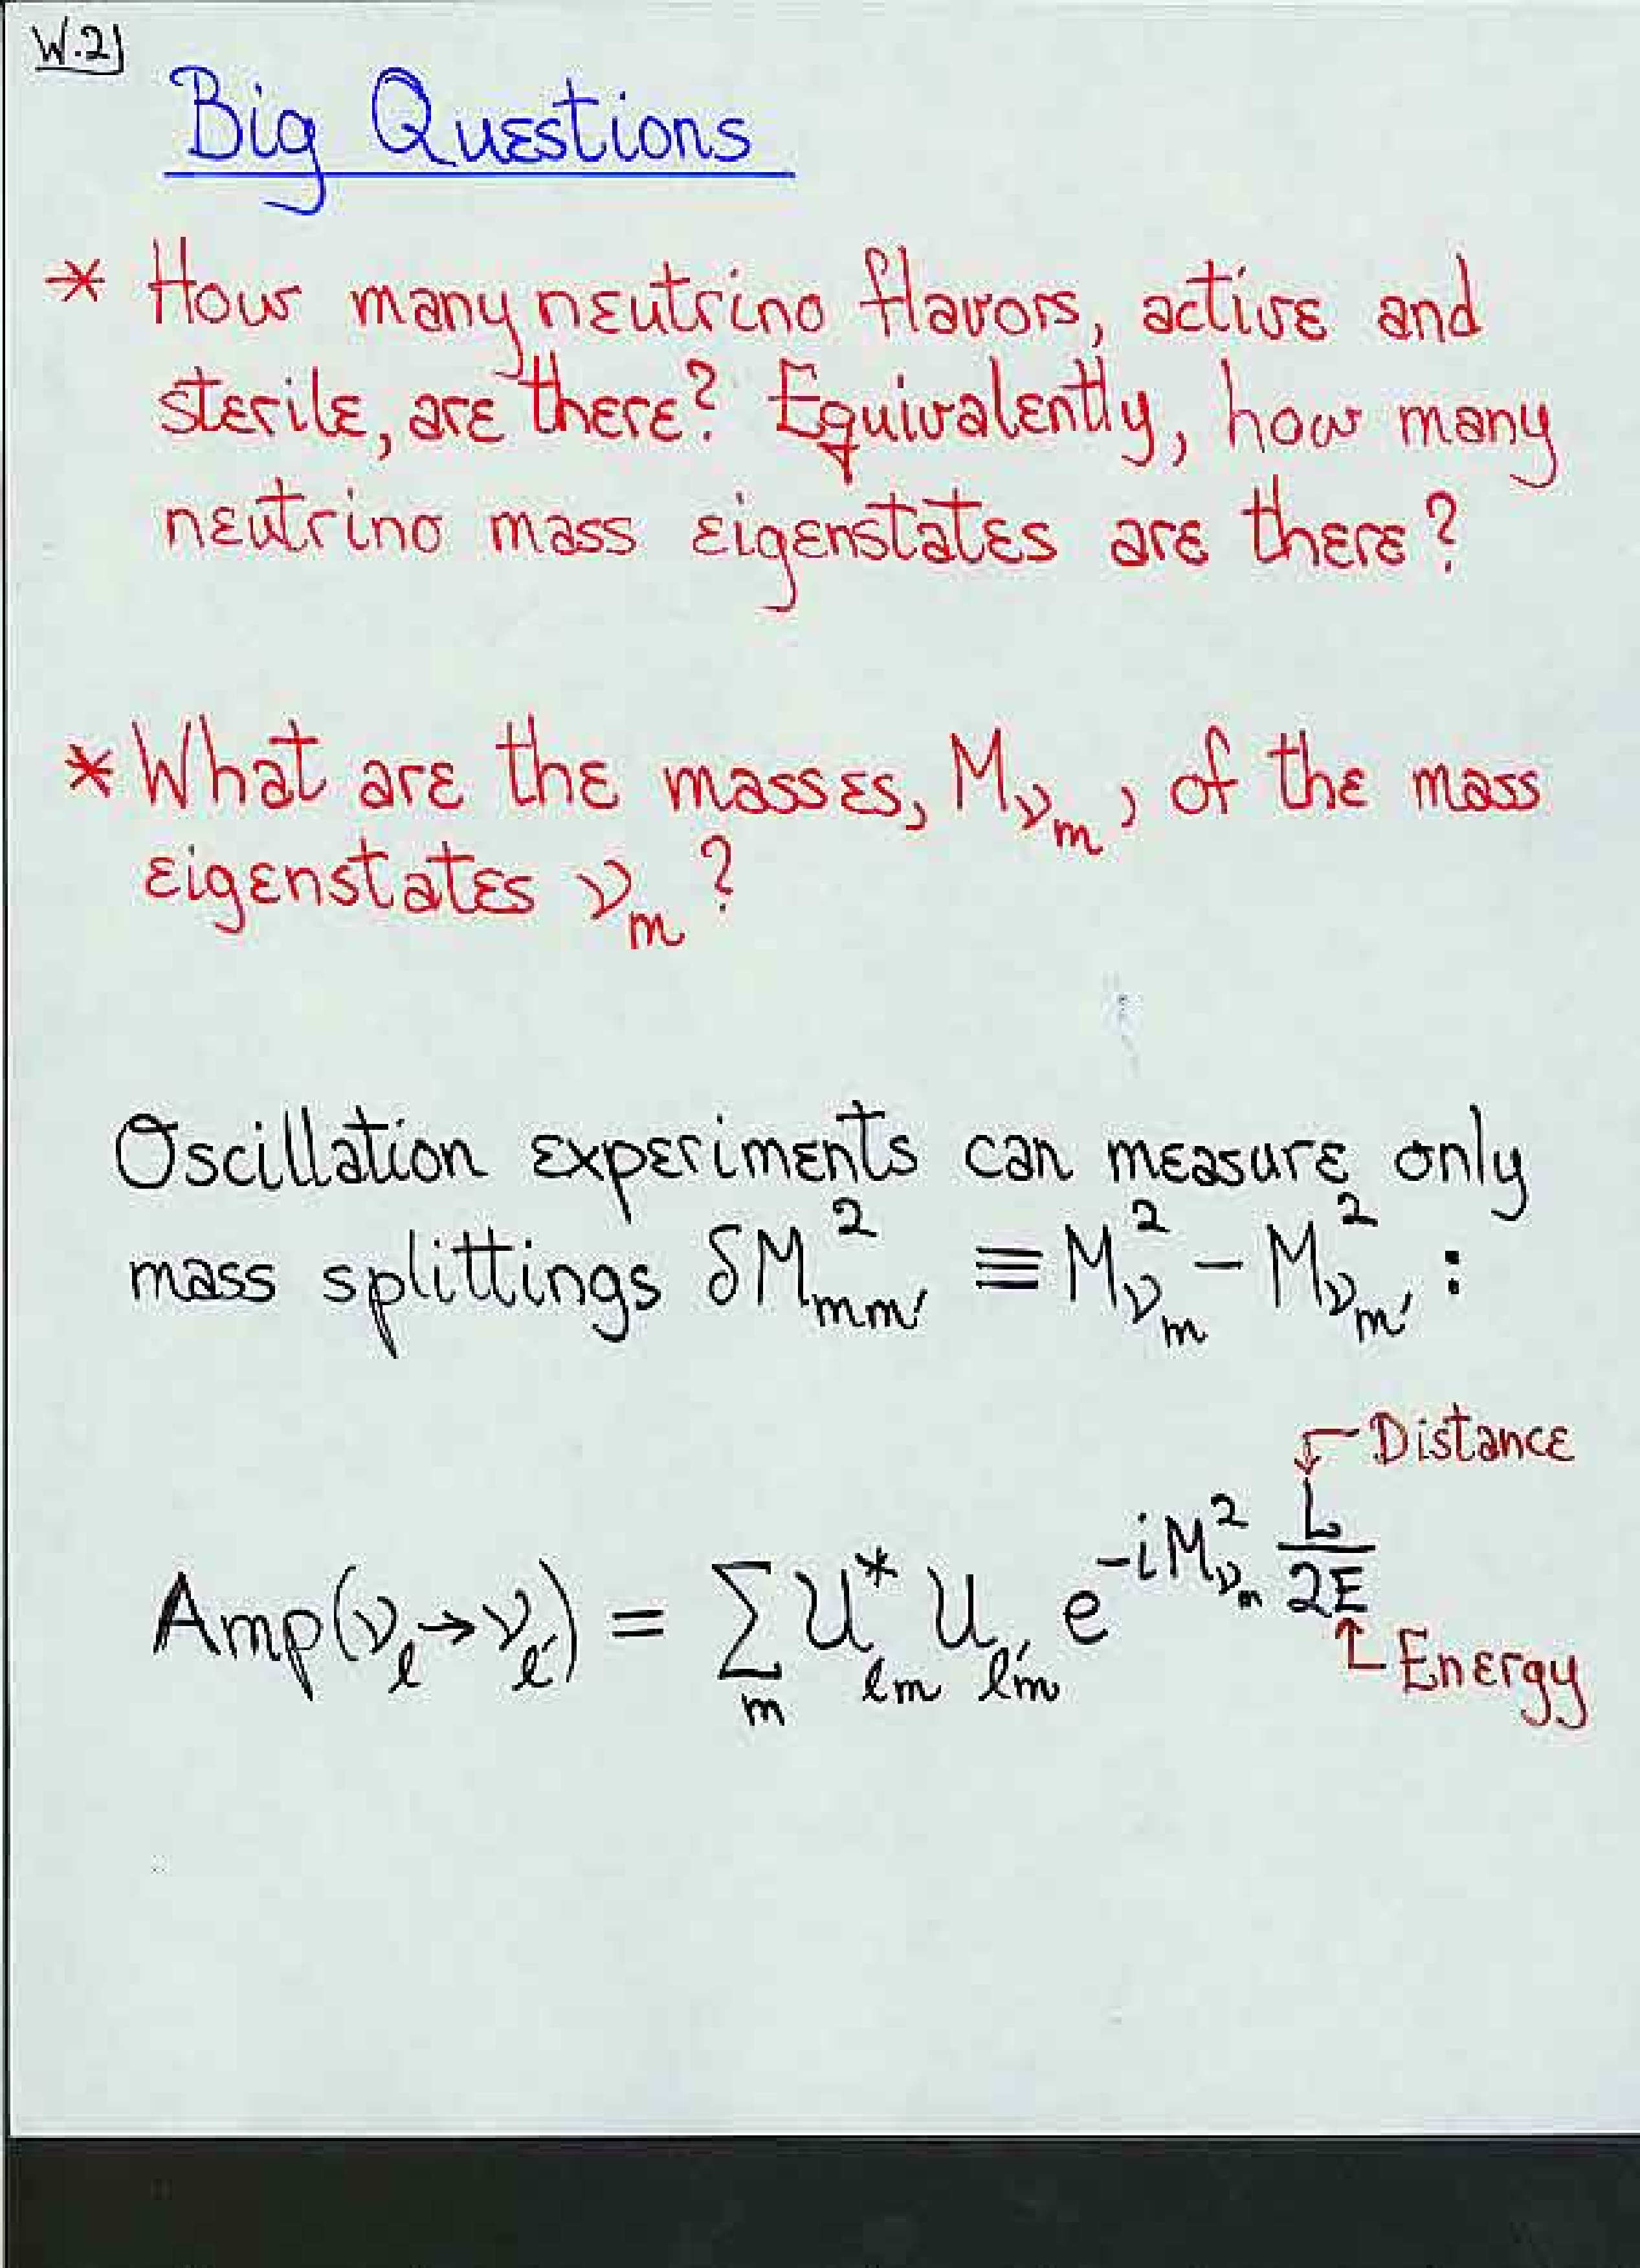 W.2
Big Questions
* How many neutrino flavors, active and
sterile, are there? Equivalently, how many
neutrino mass eigenstates are there?
* What are the masses, M_{ν_m}, of the mass
eigenstates ν_m?
Oscillation experiments can measure only
mass splittings δM²_{mm'} ≡ M²_{ν_m} − M²_{ν_{m'}} :
Distance
Amp(ν_ℓ → ν_{ℓ'}) = Σ_m U*_{ℓm} U_{ℓ'm} e^{−iM²_{ν_m} L/2E}
Energy